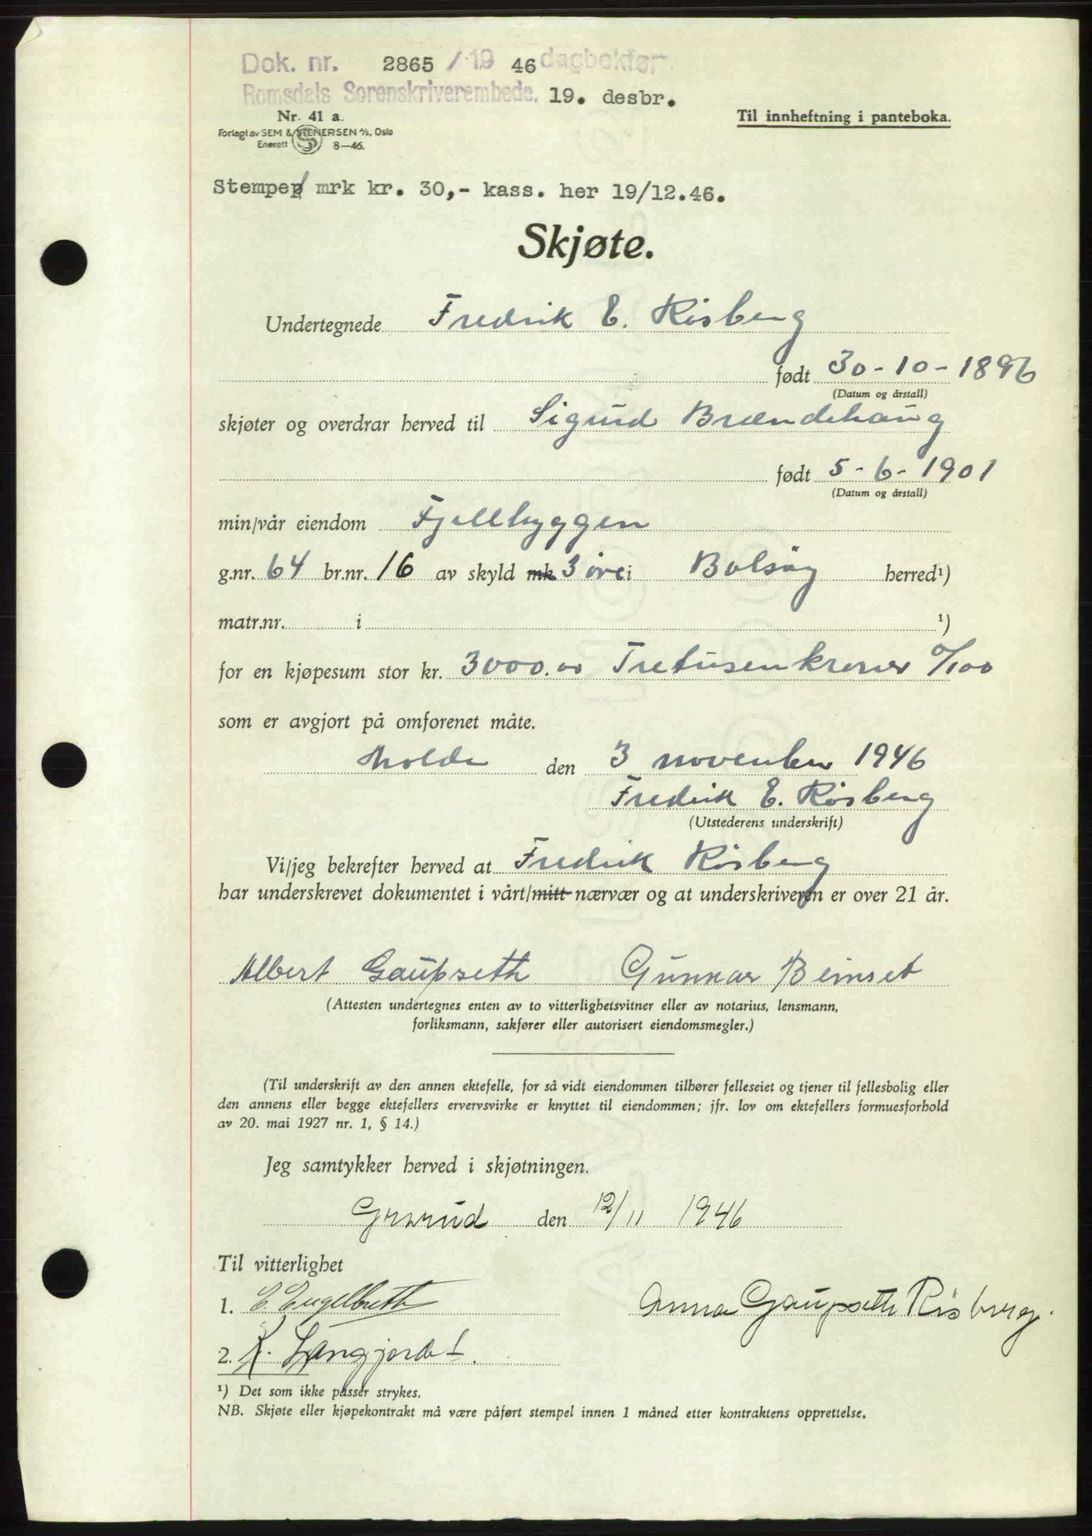 Dok. nr. 2865 / 19 46 dagbokfør
Romsdals Sorenskriverembede, 19. desbr.
Nr. 41 a.
Forlagt av SEM & STENERSEN A/S, Oslo
Enerett 8—46.
Til innheftning i panteboka.
Stempel mrk kr. 30,- kass. her 19/12.46.
Skjøte.
Undertegnede Fredrik E. Risberg
født 30-10-1896
(Datum og årstall)
skjøter og overdrar herved til Sigurd Brændehaug
født 5-6-1901
(Datum og årstall)
min/vår eiendom Fjellhyggen
g.nr. 64 br.nr. 16 av skyld mk 3 øre i Bolsøy herred¹)
matr.nr. i ¹)
for en kjøpesum stor kr. 3000.00 Tretusenkroner 0/100
som er avgjort på omforenet måte.
Molde den 3 november 1946
Fredrik E. Risberg
(Utstederens underskrift)
Vi/jeg bekrefter herved at Fredrik Risberg
har underskrevet dokumentet i vårt/mitt nærvær og at underskriveren er over 21 år.
Albert Gaupseth Gunnar Beinset
(Attesten undertegnes enten av to vitterlighetsvitner eller av notarius, lensmann,
forliksmann, sakfører eller autorisert eiendomsmegler.)
(Til underskrift av den annen ektefelle, for så vidt eiendommen tilhører felleseiet og tjener til fellesbolig eller
den annens eller begge ektefellers ervervsvirke er knyttet til eiendommen; jfr. lov om ektefellers formuesforhold
av 20. mai 1927 nr. 1, § 14.)
Jeg samtykker herved i skjøtningen.
Grorud den 12/11 1946
Til vitterlighet
1. E. Engelbreth
Anna Gaupseth Risberg.
2. K. Langjordet.
¹) Det som ikke passer strykes.
NB. Skjøte eller kjøpekontrakt må være påført stempel innen 1 måned etter kontraktens opprettelse.